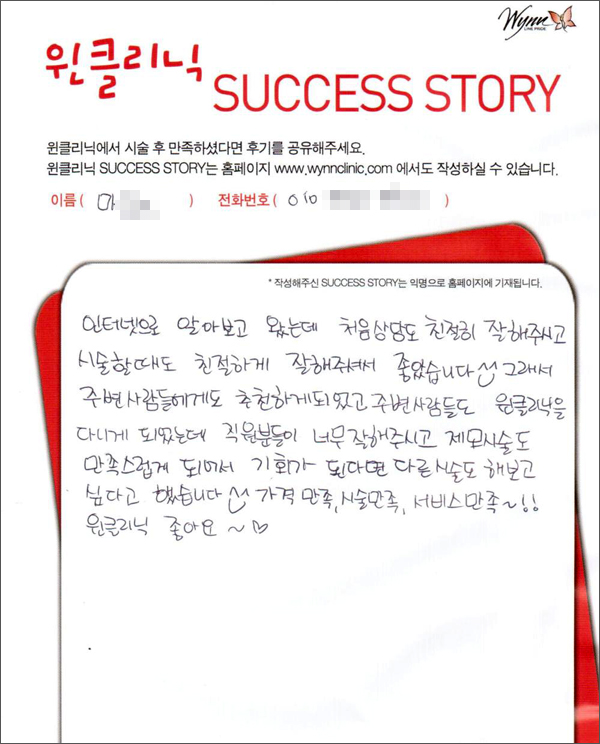 Wynn
LINE PRIDE
윈클리닉
SUCCESS STORY
윈클리닉에서 시술 후 만족하셨다면 후기를 공유해주세요.
윈클리닉 SUCCESS STORY는 홈페이지 www.wynnclinic.com 에서도 작성하실 수 있습니다.
이름 ( 마 ) 전화번호 ( 010 )
* 작성해주신 SUCCESS STORY는 익명으로 홈페이지에 기재됩니다.
인터넷으로 알아보고 왔는데 처음상담도 친절히 잘해주시고
시술할때도 친절하게 잘해주셔서 좋았습니다 그래서
주변사람들에게도 추천하게되었고 주변사람들도 윈클리닉을
다니게 되었는데 직원분들이 너무잘해주시고 제모시술도
만족스럽게 되어서 기회가 된다면 다른시술도 해보고
싶다고 했습니다 가격 만족, 시술만족, 서비스만족~!!
윈클리닉 좋아요 ~♡